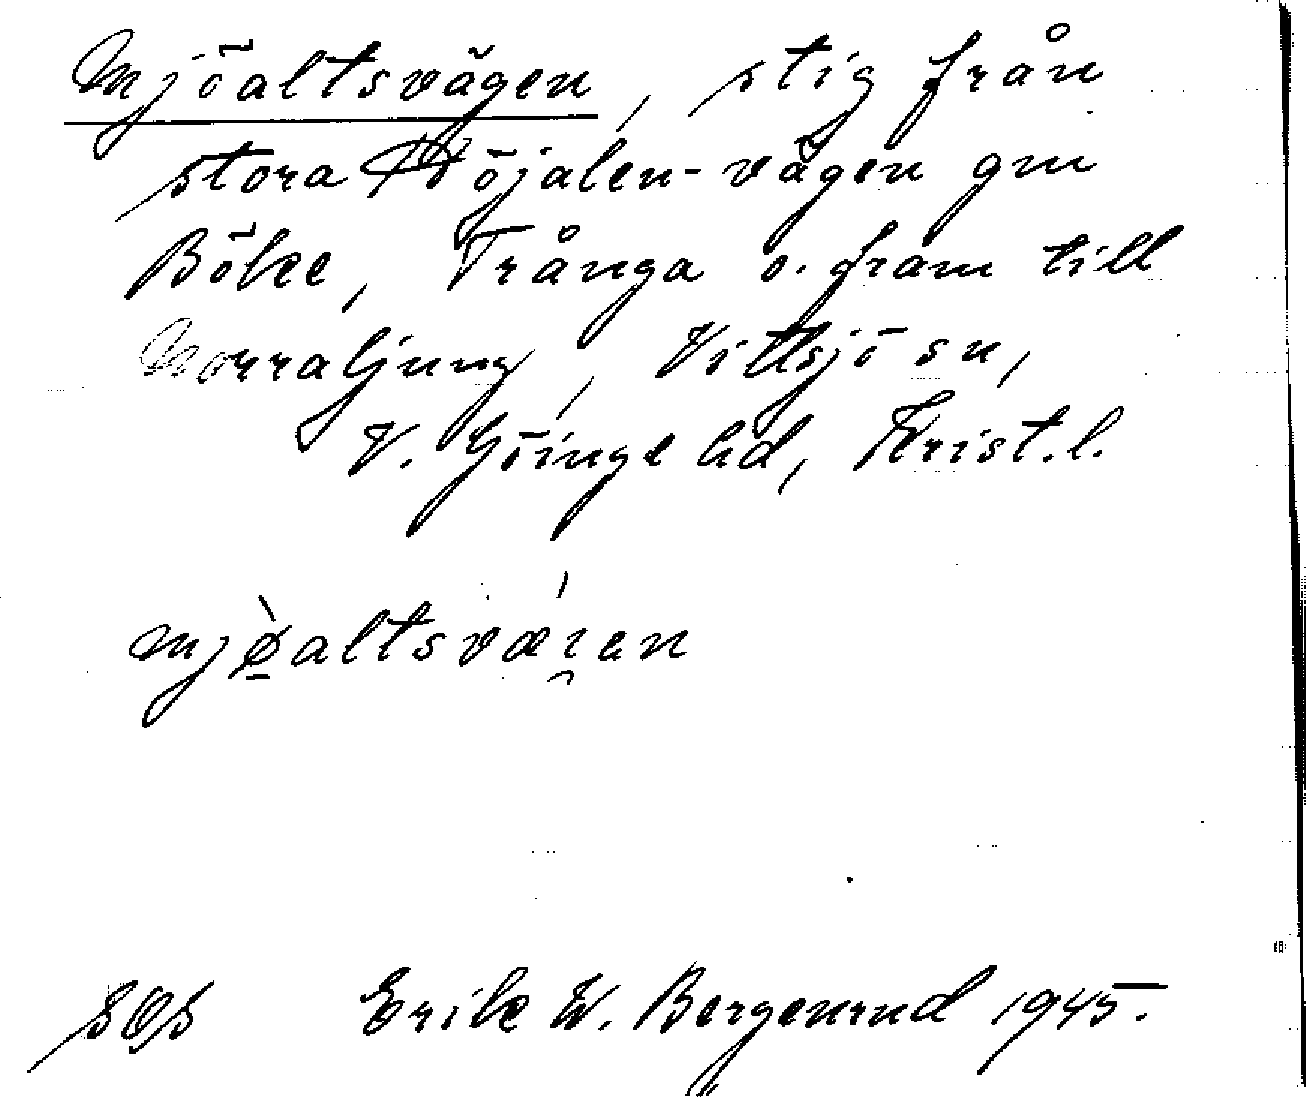 Mjöaltsvägen, stig från
stora Höjalen-vägen gm
Böke, Trånga o. fram till
Norraljung, Vittsjö sn,
V. Göinge hd, Krist.l.
mjø̀altsvæ̯ŕen
SOS Erik W. Bergenrud 1945.